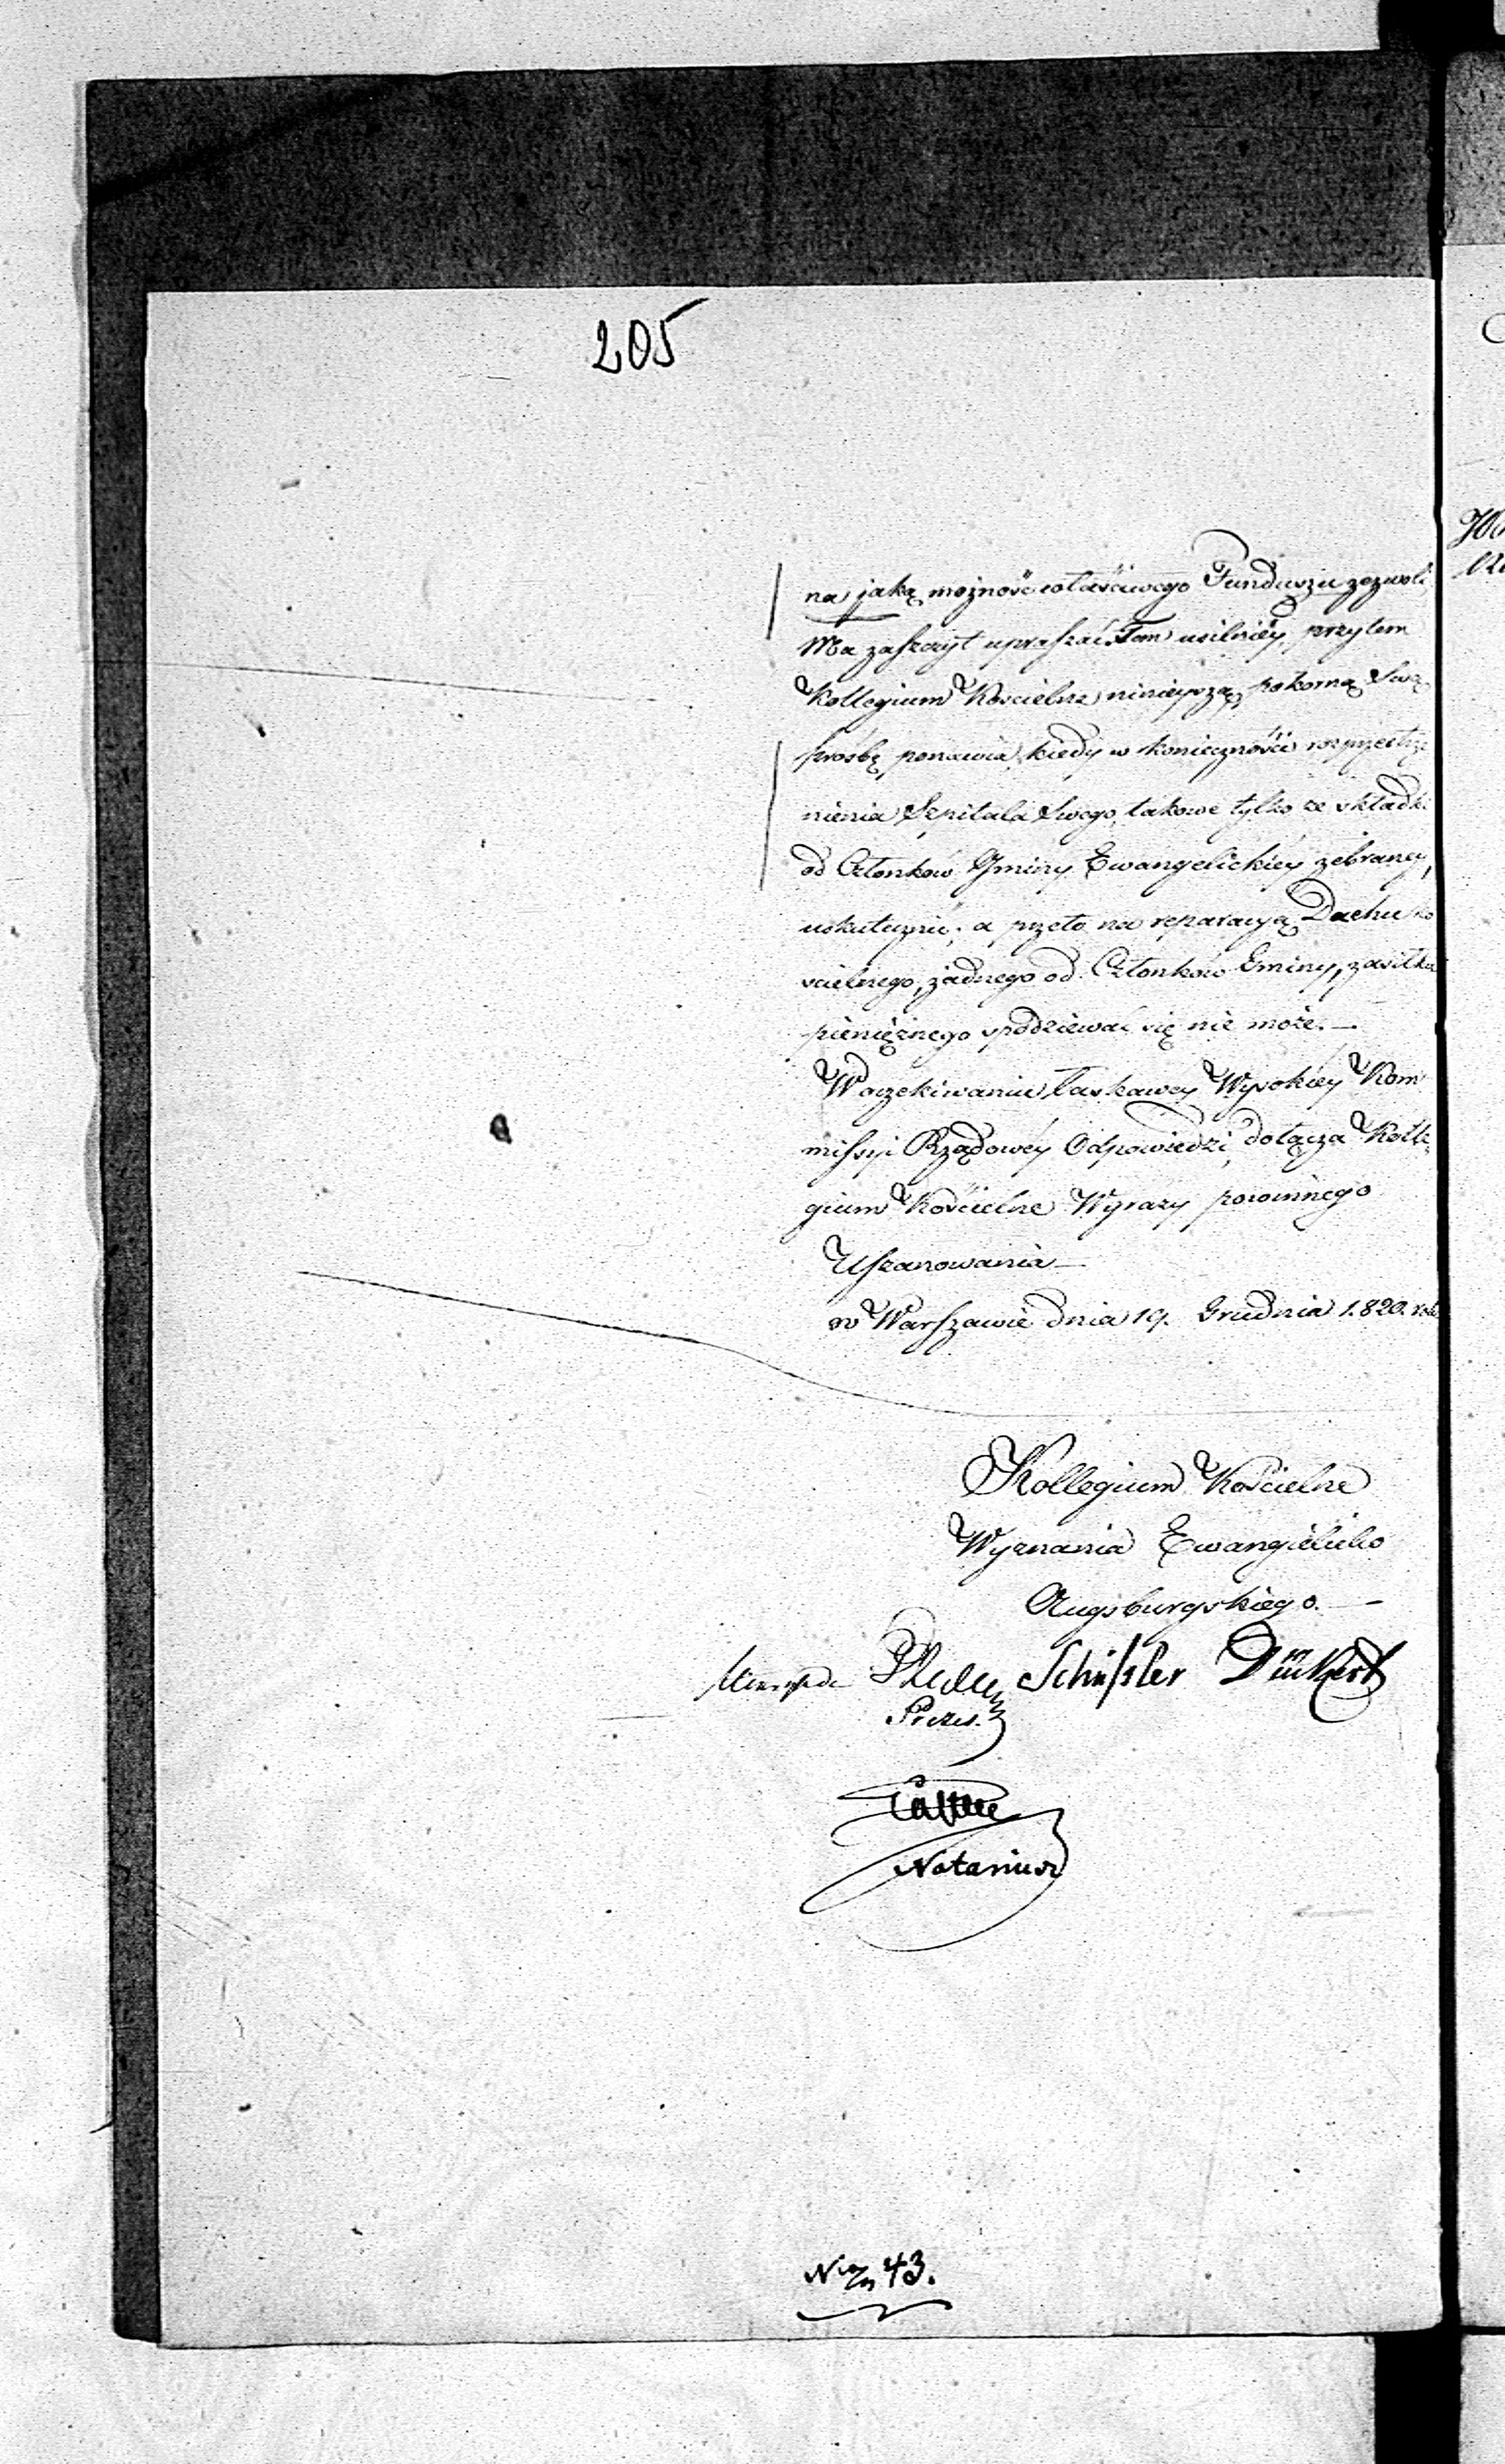 205
na jaką możność właściwego Funduszu zezwoli
Ma zaszczyt upraszać. Tem usilniéy, przytem
Kollegium Kościelne ninieyszą, pokorną Swą
prośbę ponawia, kiedy w konieczności rozprzestrze
nienia Szpitala Swego, takowe tylko ze składki
od Członków Gminy Ewangelickiéy zebraney,
uskutecznić; a przeto na reparacyą Dachu ko
ścielnego, żadnego od Członków Gminy, zasiłku
pieniężnego spodziewać się nie może. —
W oczekiwaniu łaskawey Wysokiéy Kom
missyi Rządowéy Odpowiedzi, dołącza Kolle
gium Kościelne Wyrazy powinnego
Uszanowania —
w Warszawie dnia 19. Grudnia 1.820. roku
Kollegium Kościelne
Wyznania Ewangielicko
Augsburgskiego. —
Schüssler Dückert
Prezes.
Notariusz
43.